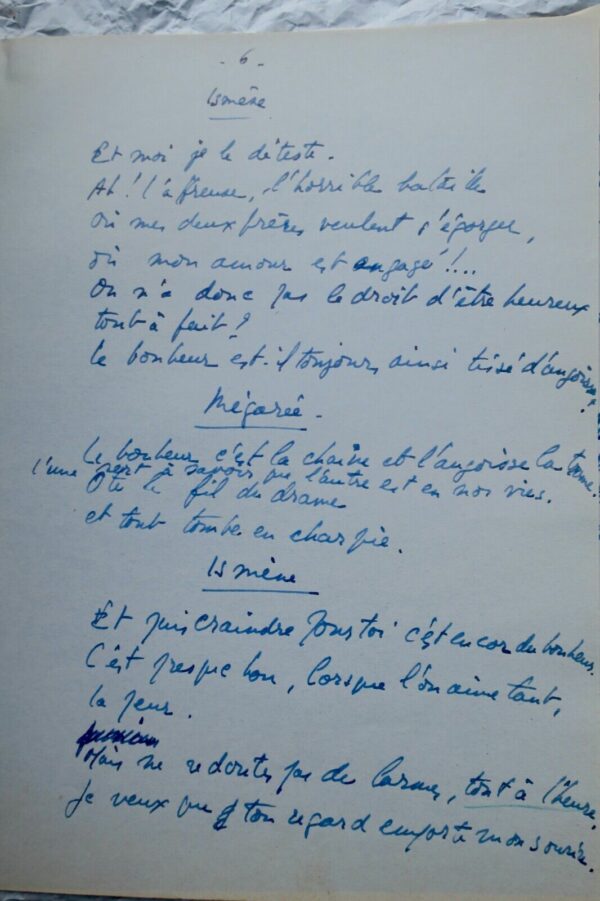 - 6 -
Ismène
Et moi je le déteste.
Ah! l'afreuse, l'horrible bataille
où mes deux frères veulent s'égorger,
où mon amour est engagé!...
On n'a donc pas le droit d'être heureux
tout à fait?
Le bonheur est-il toujours ainsi tissé d'angoisse?
Mégarée.
Le bonheur c'est la chaîne et l'angoisse la trame.
l'une sert à savoir que l'autre est en nos vies.
Ote le fil du drame
et tout tombe en charpie.
Ismène
Et puis craindre pour toi c'est encor du bonheur.
C'est presque bon, lorsque l'on aime tant,
la peur.
Mais ne redoutes pas de larmes, tout à l'heure,
Je veux que ton regard emporte mon sourire.